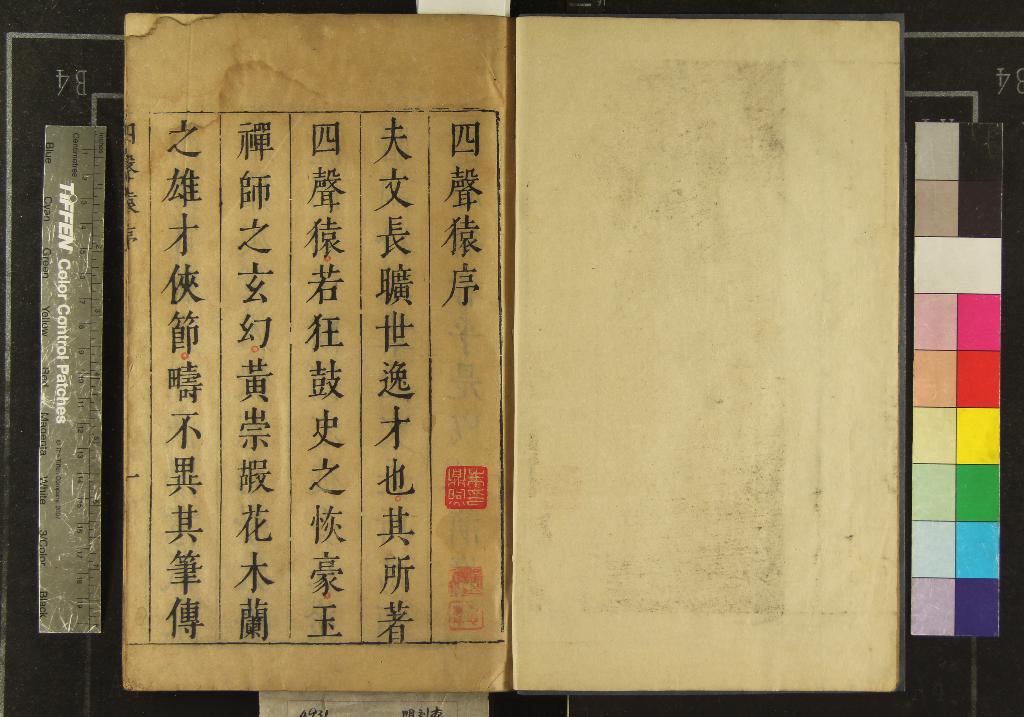 四聲猿序
夫文長曠世逸才也其所著
四聲猿若狂鼓史之恢豪玉
禪師之玄幻黃崇嘏花木蘭
之雄才俠節疇不異其筆傳
四聲猿序
一
TIFFEN Color Control Patches
Centimetres
Inches
Blue
Cyan
Green
Yellow
Red
Magenta
White
3/Color
Black
B4
B4
4931
明刻本